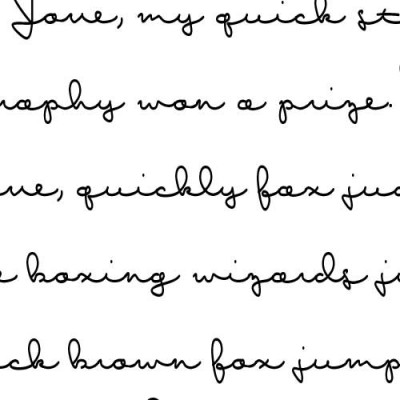 Jove, my quick st
raphy won a prize.
ove, quickly fox ju
e boxing wizards j
ick brown fox jump